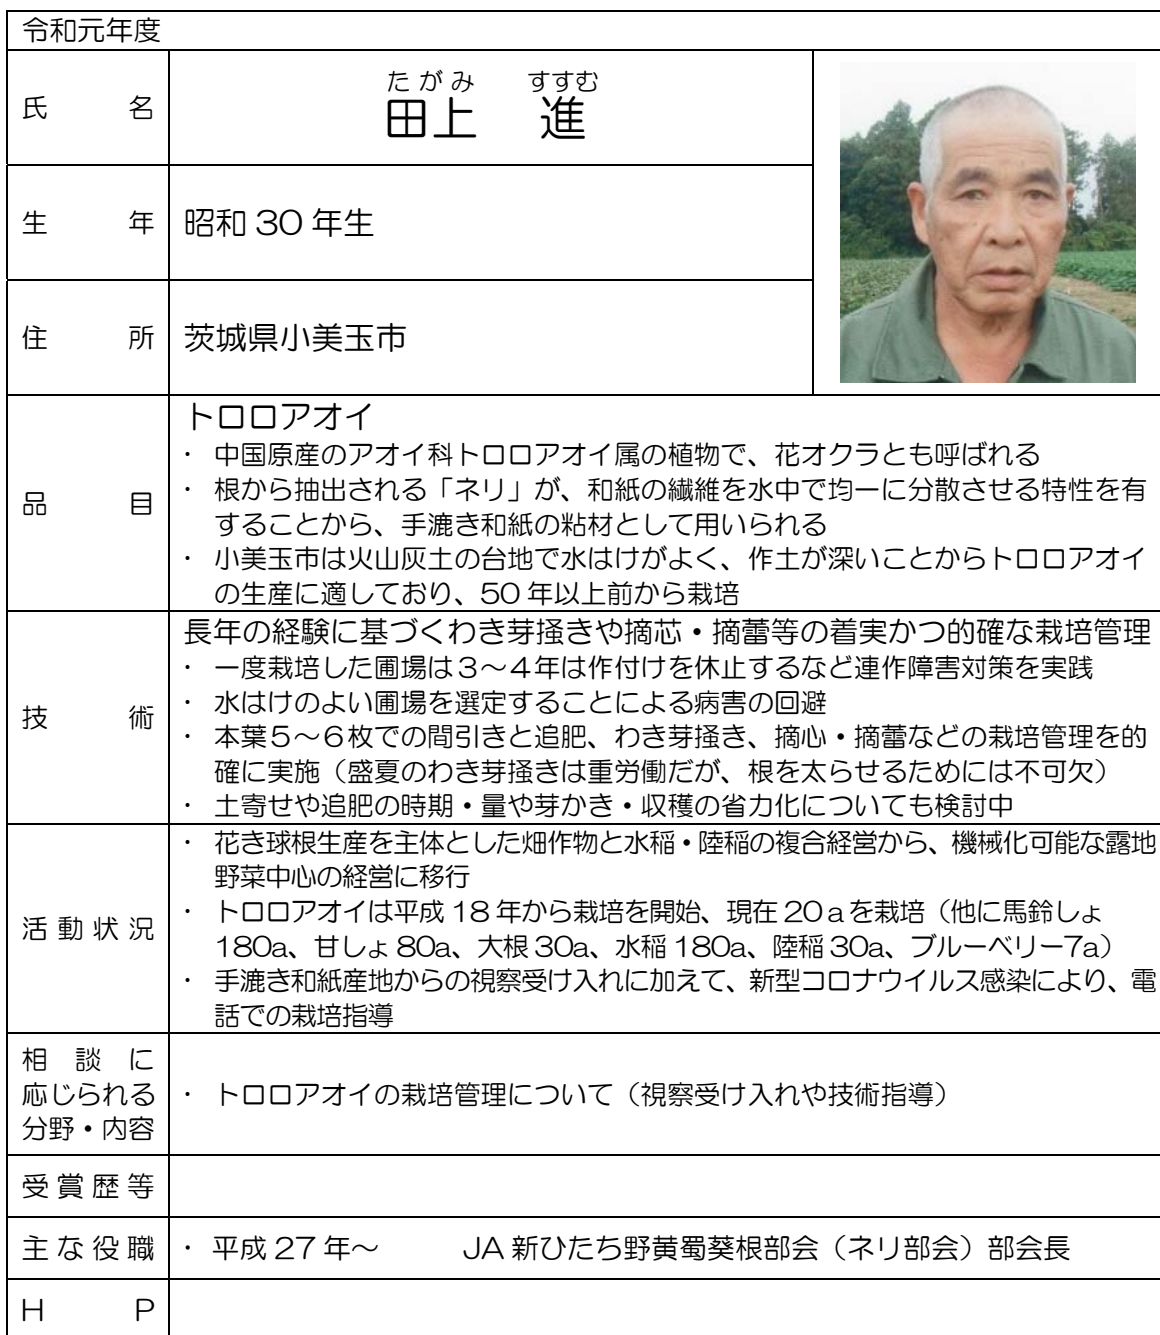 令和元年度
氏名
たがみ すすむ
田上 進
生年
昭和 30 年生
住所
茨城県小美玉市
品目
トロロアオイ
・ 中国原産のアオイ科トロロアオイ属の植物で、花オクラとも呼ばれる
・ 根から抽出される「ネリ」が、和紙の繊維を水中で均一に分散させる特性を有
することから、手漉き和紙の粘材として用いられる
・ 小美玉市は火山灰土の台地で水はけがよく、作土が深いことからトロロアオイ
の生産に適しており、50 年以上前から栽培
技術
長年の経験に基づくわき芽掻きや摘芯・摘蕾等の着実かつ的確な栽培管理
・ 一度栽培した圃場は3～4年は作付けを休止するなど連作障害対策を実践
・ 水はけのよい圃場を選定することによる病害の回避
・ 本葉5～6枚での間引きと追肥、わき芽掻き、摘心・摘蕾などの栽培管理を的
確に実施（盛夏のわき芽掻きは重労働だが、根を太らせるためには不可欠）
・ 土寄せや追肥の時期・量や芽かき・収穫の省力化についても検討中
活動状況
・ 花き球根生産を主体とした畑作物と水稲・陸稲の複合経営から、機械化可能な露地
野菜中心の経営に移行
・ トロロアオイは平成 18 年から栽培を開始、現在 20ａを栽培（他に馬鈴しょ
180a、甘しょ 80a、大根 30a、水稲 180a、陸稲 30a、ブルーベリー7a）
・ 手漉き和紙産地からの視察受け入れに加えて、新型コロナウイルス感染により、電
話での栽培指導
相談に
応じられる
分野・内容
・ トロロアオイの栽培管理について（視察受け入れや技術指導）
受賞歴等
主な役職
・ 平成 27 年～ JA 新ひたち野黄蜀葵根部会（ネリ部会）部会長
H P